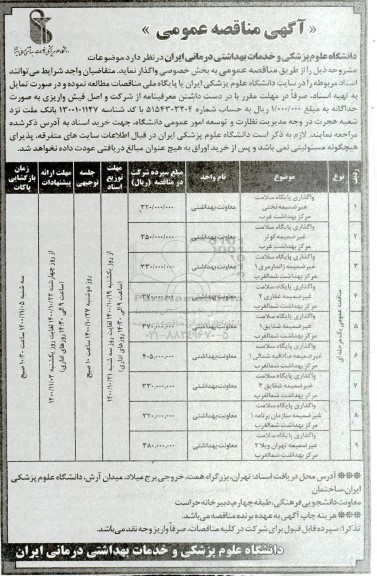 « آگهی مناقصه عمومی »
دانشگاه علوم پزشکی و خدمات بهداشتی درمانی ایران در نظر دارد موضوعات
مشروحه ذیل را از طریق مناقصه عمومی به بخش خصوصی واگذار نماید. متقاضیان واجد شرایط می‌توانند
اسناد مربوطه را در سایت دانشگاه علوم پزشکی ایران یا پایگاه ملی مناقصات مطالعه نموده و در صورت تمایل
به تهیه اسناد، صرفاً در مهلت مقرر با در دست داشتن معرفینامه از شرکت و اصل فیش واریزی به صورت
جداگانه به مبلغ ۱/۰۰۰/۰۰۰ ریال به حساب شماره ۵۱۵۴۳۰۳۳۰۴ با کد شناسه ۱۳۰۰۱۰۱۱۲۷ بانک ملت نزد
شعبه هجرت در وجه مدیریت نظارت و توسعه امور عمومی دانشگاه، جهت خرید اسناد به آدرس ذکر شده
مراجعه نمایند. لازم به ذکر است دانشگاه علوم پزشکی ایران در قبال اطلاعات سایت های متفرقه، پذیرای
هیچگونه مسئولیتی نمی باشد و پس از خرید اوراق به هیچ عنوان مبالغ دریافتی عودت داده نخواهد شد.
ردیف نوع موضوع نام واحد مبلغ سپرده شرکت در مناقصه (ریال) مهلت توزیع اسناد جلسه توجیهی مهلت ارائه پیشنهادات زمان بازگشایی پاکات
مناقصه عمومی یک مرحله ای
۱ واگذاری پایگاه سلامت غیرضمیمه تختی مرکز بهداشت غرب معاونت بهداشتی ۳۲۰/۰۰۰/۰۰۰
۲ واگذاری پایگاه سلامت غیرضمیمه کوثر مرکز بهداشت غرب معاونت بهداشتی ۳۵۰/۰۰۰/۰۰۰
۳ واگذاری پایگاه سلامت غیرضمیمه ژاندارمری ۱ مرکز بهداشت شمالغرب معاونت بهداشتی ۳۳۰/۰۰۰/۰۰۰
۴ واگذاری پایگاه سلامت غیرضمیمه غفاری ۲ مرکز بهداشت شمالغرب معاونت بهداشتی ۳۷۰/۰۰۰/۰۰۰
۵ واگذاری پایگاه سلامت غیرضمیمه شقایق ۱ مرکز بهداشت شمالغرب معاونت بهداشتی ۳۷۰/۰۰۰/۰۰۰
۶ واگذاری پایگاه سلامت غیرضمیمه صادقیه شمالی ۱ مرکز بهداشت شمالغرب معاونت بهداشتی ۴۰۵/۰۰۰/۰۰۰
۷ واگذاری پایگاه سلامت غیرضمیمه شقایق ۲ مرکز بهداشت شمالغرب معاونت بهداشتی ۳۳۰/۰۰۰/۰۰۰
۸ واگذاری پایگاه سلامت غیرضمیمه سازمان برنامه ۱ مرکز بهداشت شمالغرب معاونت بهداشتی ۳۲۰/۰۰۰/۰۰۰
۹ واگذاری پایگاه سلامت غیرضمیمه تهران ویلا ۲ مرکز بهداشت شمالغرب معاونت بهداشتی ۳۸۰/۰۰۰/۰۰۰
از روز یکشنبه ۱۴۰۰/۱۰/۱۹ لغایت روز سه شنبه ۱۴۰۰/۱۰/۲۱ (ساعت ۹ الی ۱۴:۳۰ روزهای اداری)
روز دوشنبه ۱۴۰۰/۱۰/۲۷ ساعت ۱۰ صبح
از روز چهارشنبه ۱۴۰۰/۱۰/۲۲ لغایت روز یکشنبه ۱۴۰۰/۱۱/۰۳ (ساعت ۹ الی ۱۴:۳۰ روزهای اداری)
سه شنبه ۱۴۰۰/۱۱/۰۵ ساعت ۱۰:۳۰ صبح
۰۲۱-۸۸۳۴۹۶۷۰-۵
*** آدرس محل دریافت اسناد: تهران، بزرگراه همت، خروجی برج میلاد، میدان آرش، دانشگاه علوم پزشکی
ایران، ساختمان
معاونت دانشجویی فرهنگی، طبقه چهارم، دبیرخانه حراست
*** هزینه چاپ آگهی به عهده برنده مناقصه می باشد.
تذکر۱: سپرده قابل قبول برای شرکت در کلیه مناقصات، صرفاً واریز وجه نقد می باشد.
دانشگاه علوم پزشکی و خدمات بهداشتی درمانی ایران